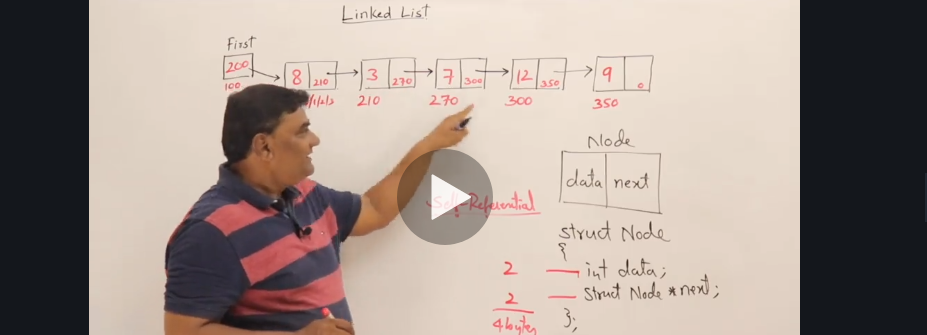 Linked List
First
200
100
8 210
3 270
7 300
12 350
9 0
210
270
300
350
Node
data next
Self-Referential
struct Node
{
2 int data;
2 struct Node *next;
4bytes };